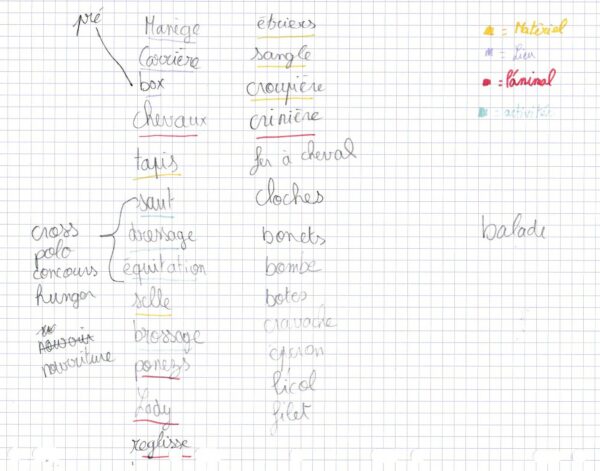 pré
Manège
Carrière
box
chevaux
tapis
saut
dressage
équitation
selle
brossage
poneys
Lady
reglisse
cross
polo
concours
hungor
nourriture
étriers
sangle
croupière
crinière
fer à cheval
cloches
bonets
bombe
botes
cravache
éperon
licol
filet
= Matériel
= Lieu
= l'animal
= activités
balade